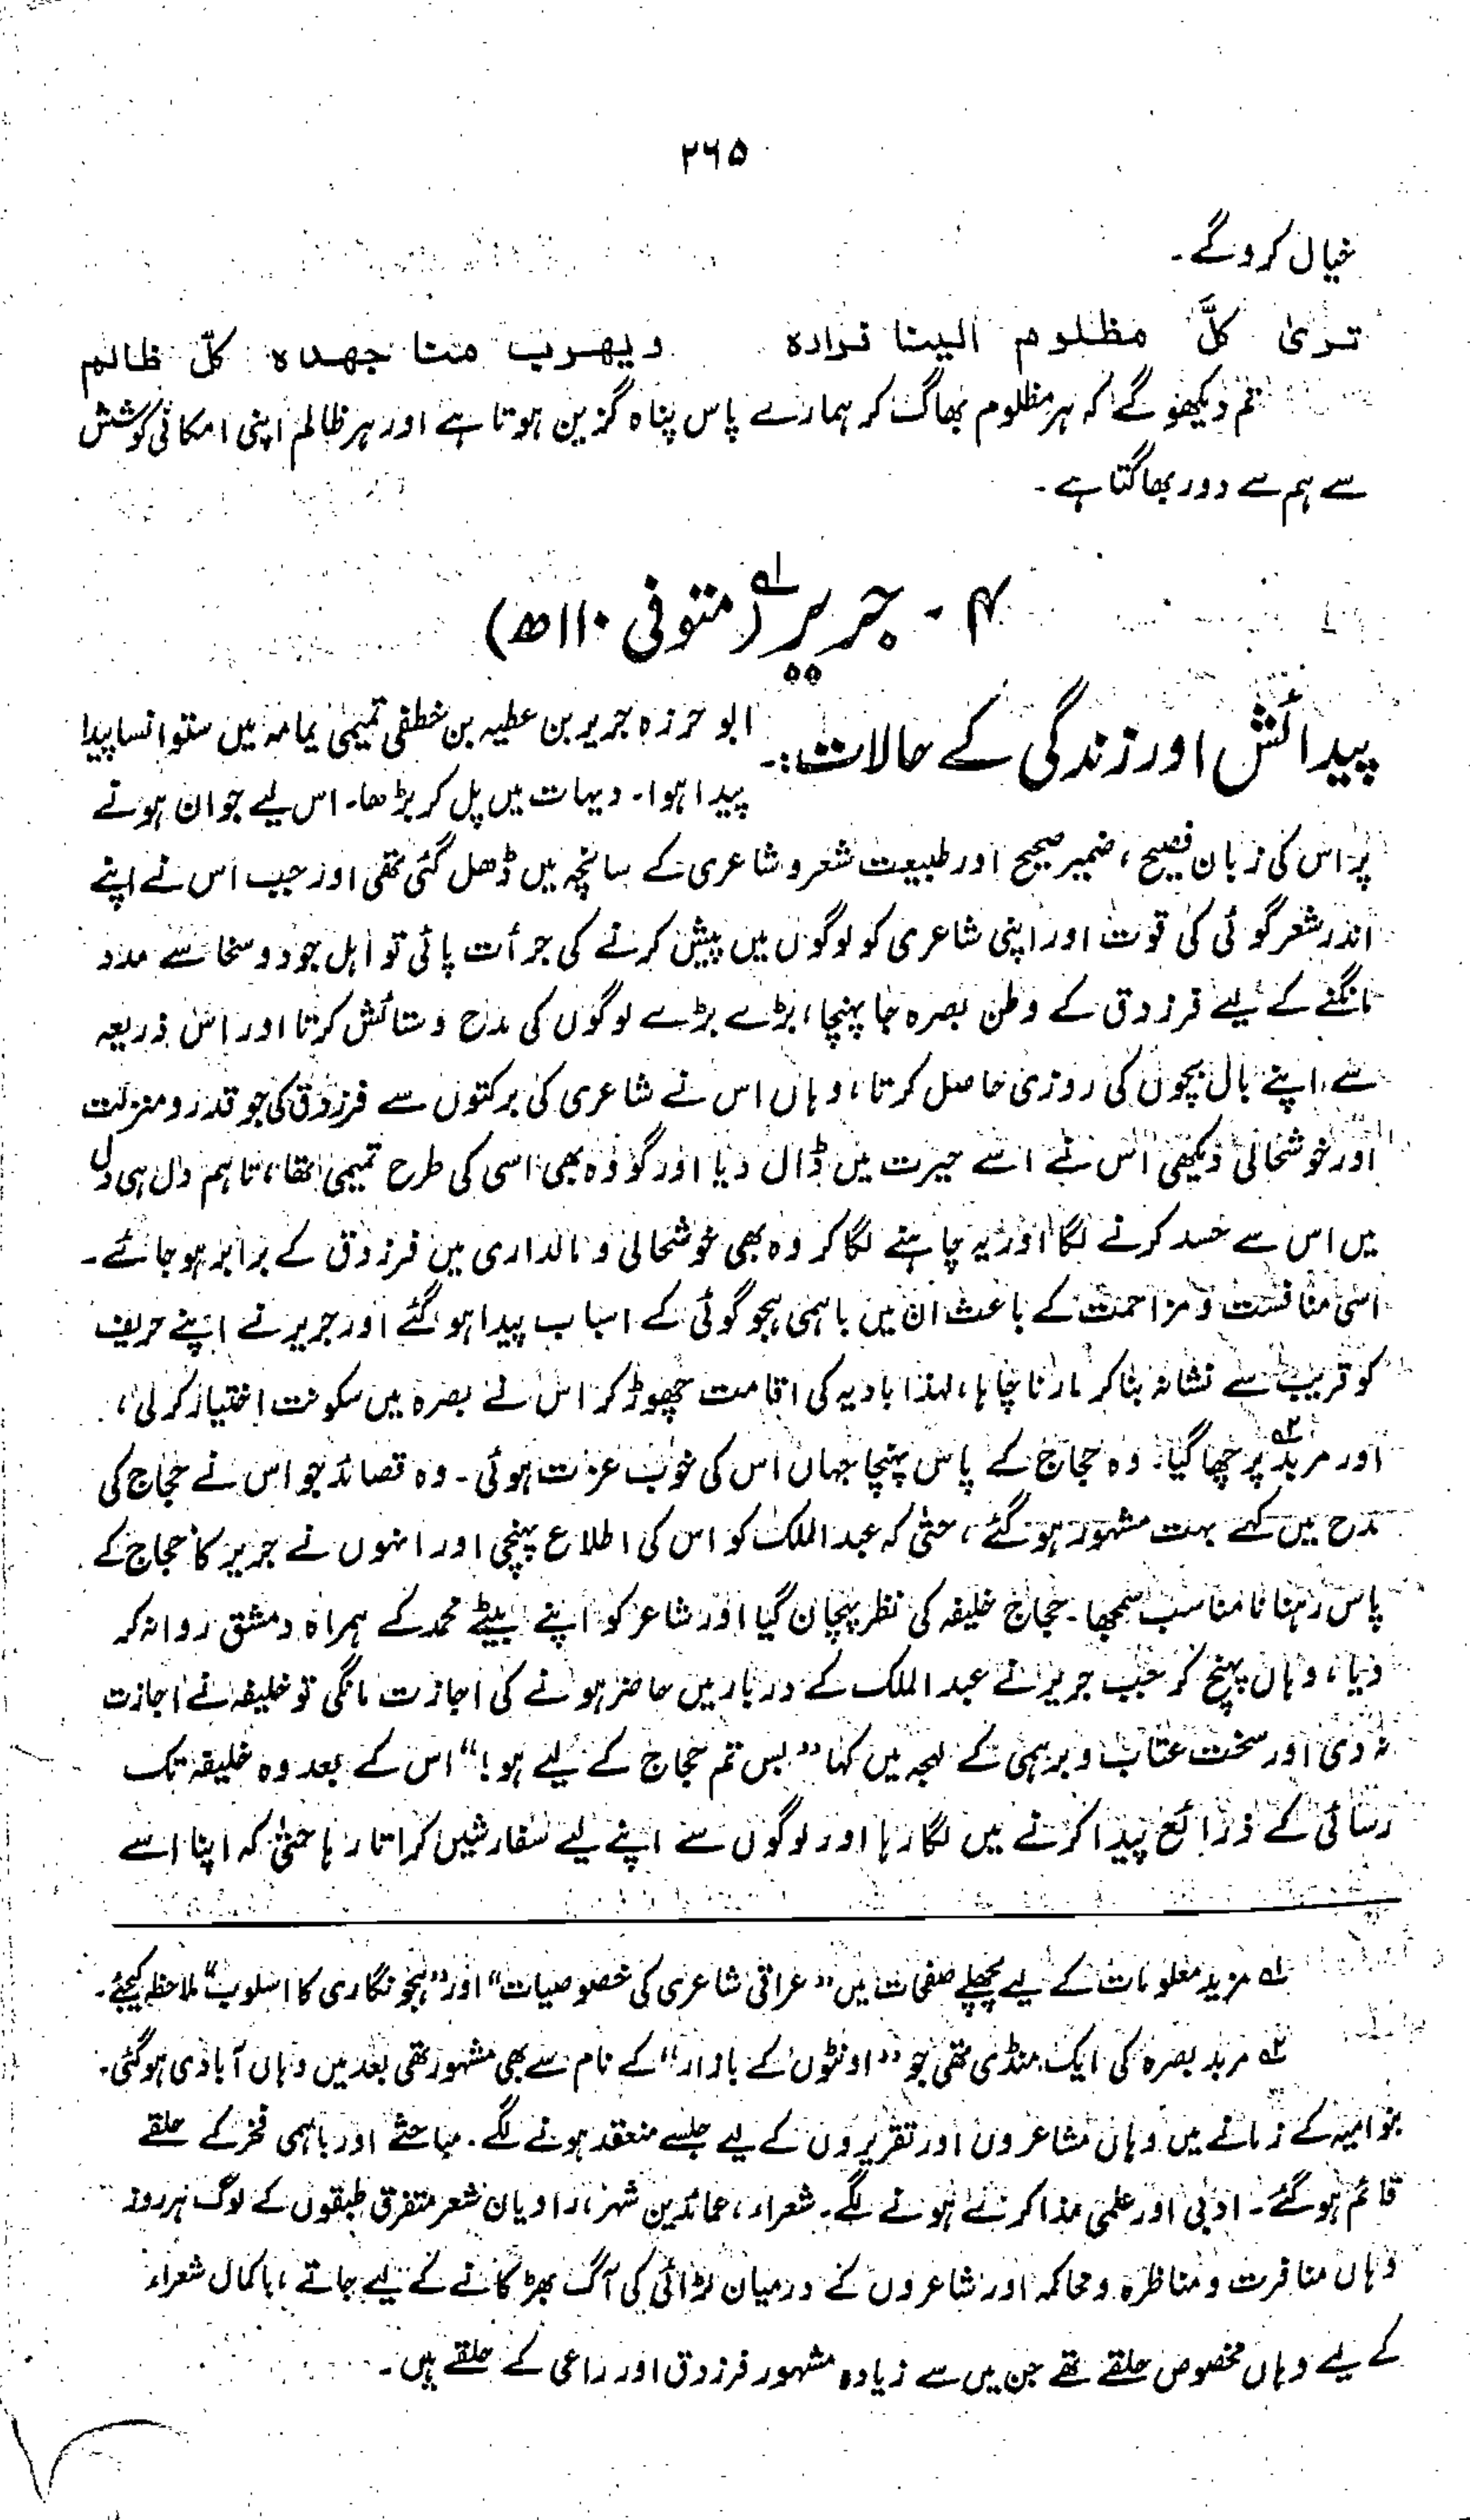 ۲۶۵
خیال کرو گے۔
تریٰ کلَّ مظلوم الینا فرارہ ویھرب منا جھدہ کلّ ظالم
تم دیکھو گے کہ ہر مظلوم بھاگ کر ہمارے پاس پناہ گزین ہوتا ہے اور ہر ظالم اپنی امکانی کوشش
سے ہم سے دور بھاگتا ہے۔
۴۔ جریر؎۱ (متوفی ۱۱۰ھ)
پیدائش اور زندگی کے حالات:۔ ابو حرزہ جریر بن عطیہ بن خطفی تمیمی یمامہ میں ستوانسا پیدا
پیدا ہوا۔ دیہات میں پل کر بڑھا۔ اس لیے جوان ہونے
پر اس کی زبان فصیح، ضمیر صحیح اور طبیعت شعر و شاعری کے سانچہ میں ڈھل گئی تھی اور جب اس نے اپنے
اندر شعر گوئی کی قوت اور اپنی شاعری کو لوگوں میں پیش کرنے کی جرأت پائی تو اہل جود و سخا سے مدد
مانگنے کے لیے فرزدق کے وطن بصرہ جا پہنچا، بڑے بڑے لوگوں کی مدح و ستائش کرتا اور اس ذریعہ
سے اپنے بال بچوں کی روزی حاصل کرتا، وہاں اس نے شاعری کی برکتوں سے فرزدق کی جو قدر و منزلت
اور خوشحالی دیکھی اس نے اسے حیرت میں ڈال دیا اور گو وہ بھی اسی کی طرح تمیمی تھا، تاہم دل ہی دل
میں اس سے حسد کرنے لگا اور یہ چاہنے لگا کہ وہ بھی خوشحالی و مالداری میں فرزدق کے برابر ہو جائے۔
اسی منافست و مزاحمت کے باعث ان میں باہمی ہجو گوئی کے اسباب پیدا ہو گئے اور جریر نے اپنے حریف
کو قریب سے نشانہ بنا کر مارنا چاہا، لہذا بادیہ کی اقامت چھوڑ کر اس نے بصرہ میں سکونت اختیار کر لی،
اور مربد؎۲ پر چھا گیا۔ وہ حجاج کے پاس پہنچا جہاں اس کی خوب عزت ہوئی۔ وہ قصائد جو اس نے حجاج کی
مدح میں کہے بہت مشہور ہو گئے، حتیٰ کہ عبد الملک کو اس کی اطلاع پہنچی اور انہوں نے جریر کا حجاج کے
پاس رہنا نامناسب سمجھا۔ حجاج خلیفہ کی نظر پہچان گیا اور شاعر کو اپنے بیٹے محمد کے ہمراہ دمشق روانہ کر
دیا، وہاں پہنچ کر جب جریر نے عبد الملک کے دربار میں حاضر ہونے کی اجازت مانگی تو خلیفہ نے اجازت
نہ دی اور سخت عتاب و برہمی کے لہجہ میں کہا ”بس تم حجاج کے لیے ہو!“ اس کے بعد وہ خلیفہ تک
رسائی کے ذرائع پیدا کرنے میں لگا رہا اور لوگوں سے اپنے لیے سفارشیں کراتا رہا حتیٰ کہ اپنا اسے
؎۱ مزید معلومات کے لیے پچھلے صفحات میں ”عراقی شاعری کی خصوصیات“ اور ”ہجو نگاری کا اسلوب“ ملاحظہ کیجئے۔
؎۲ مربد بصرہ کی ایک منڈی تھی جو ”اونٹوں کے بازار“ کے نام سے بھی مشہور تھی بعد میں وہاں آبادی ہو گئی۔
بنو امیہ کے زمانے میں وہاں مشاعروں اور تقریروں کے لیے جلسے منعقد ہونے لگے۔ مباحثے اور باہمی فخر کے حلقے
قائم ہو گئے۔ ادبی اور علمی مذاکرے ہونے لگے۔ شعراء، عمائدین شہر، راویان شعر متفرق طبقوں کے لوگ ہر روز
وہاں منافرت و مناظرہ و محاکمہ اور شاعروں کے درمیان لڑائی کی آگ بھڑکانے کے لیے جاتے، باکمال شعراء
کے لیے وہاں مخصوص حلقے تھے جن میں سے زیادہ مشہور فرزدق اور راعی کے حلقے ہیں۔